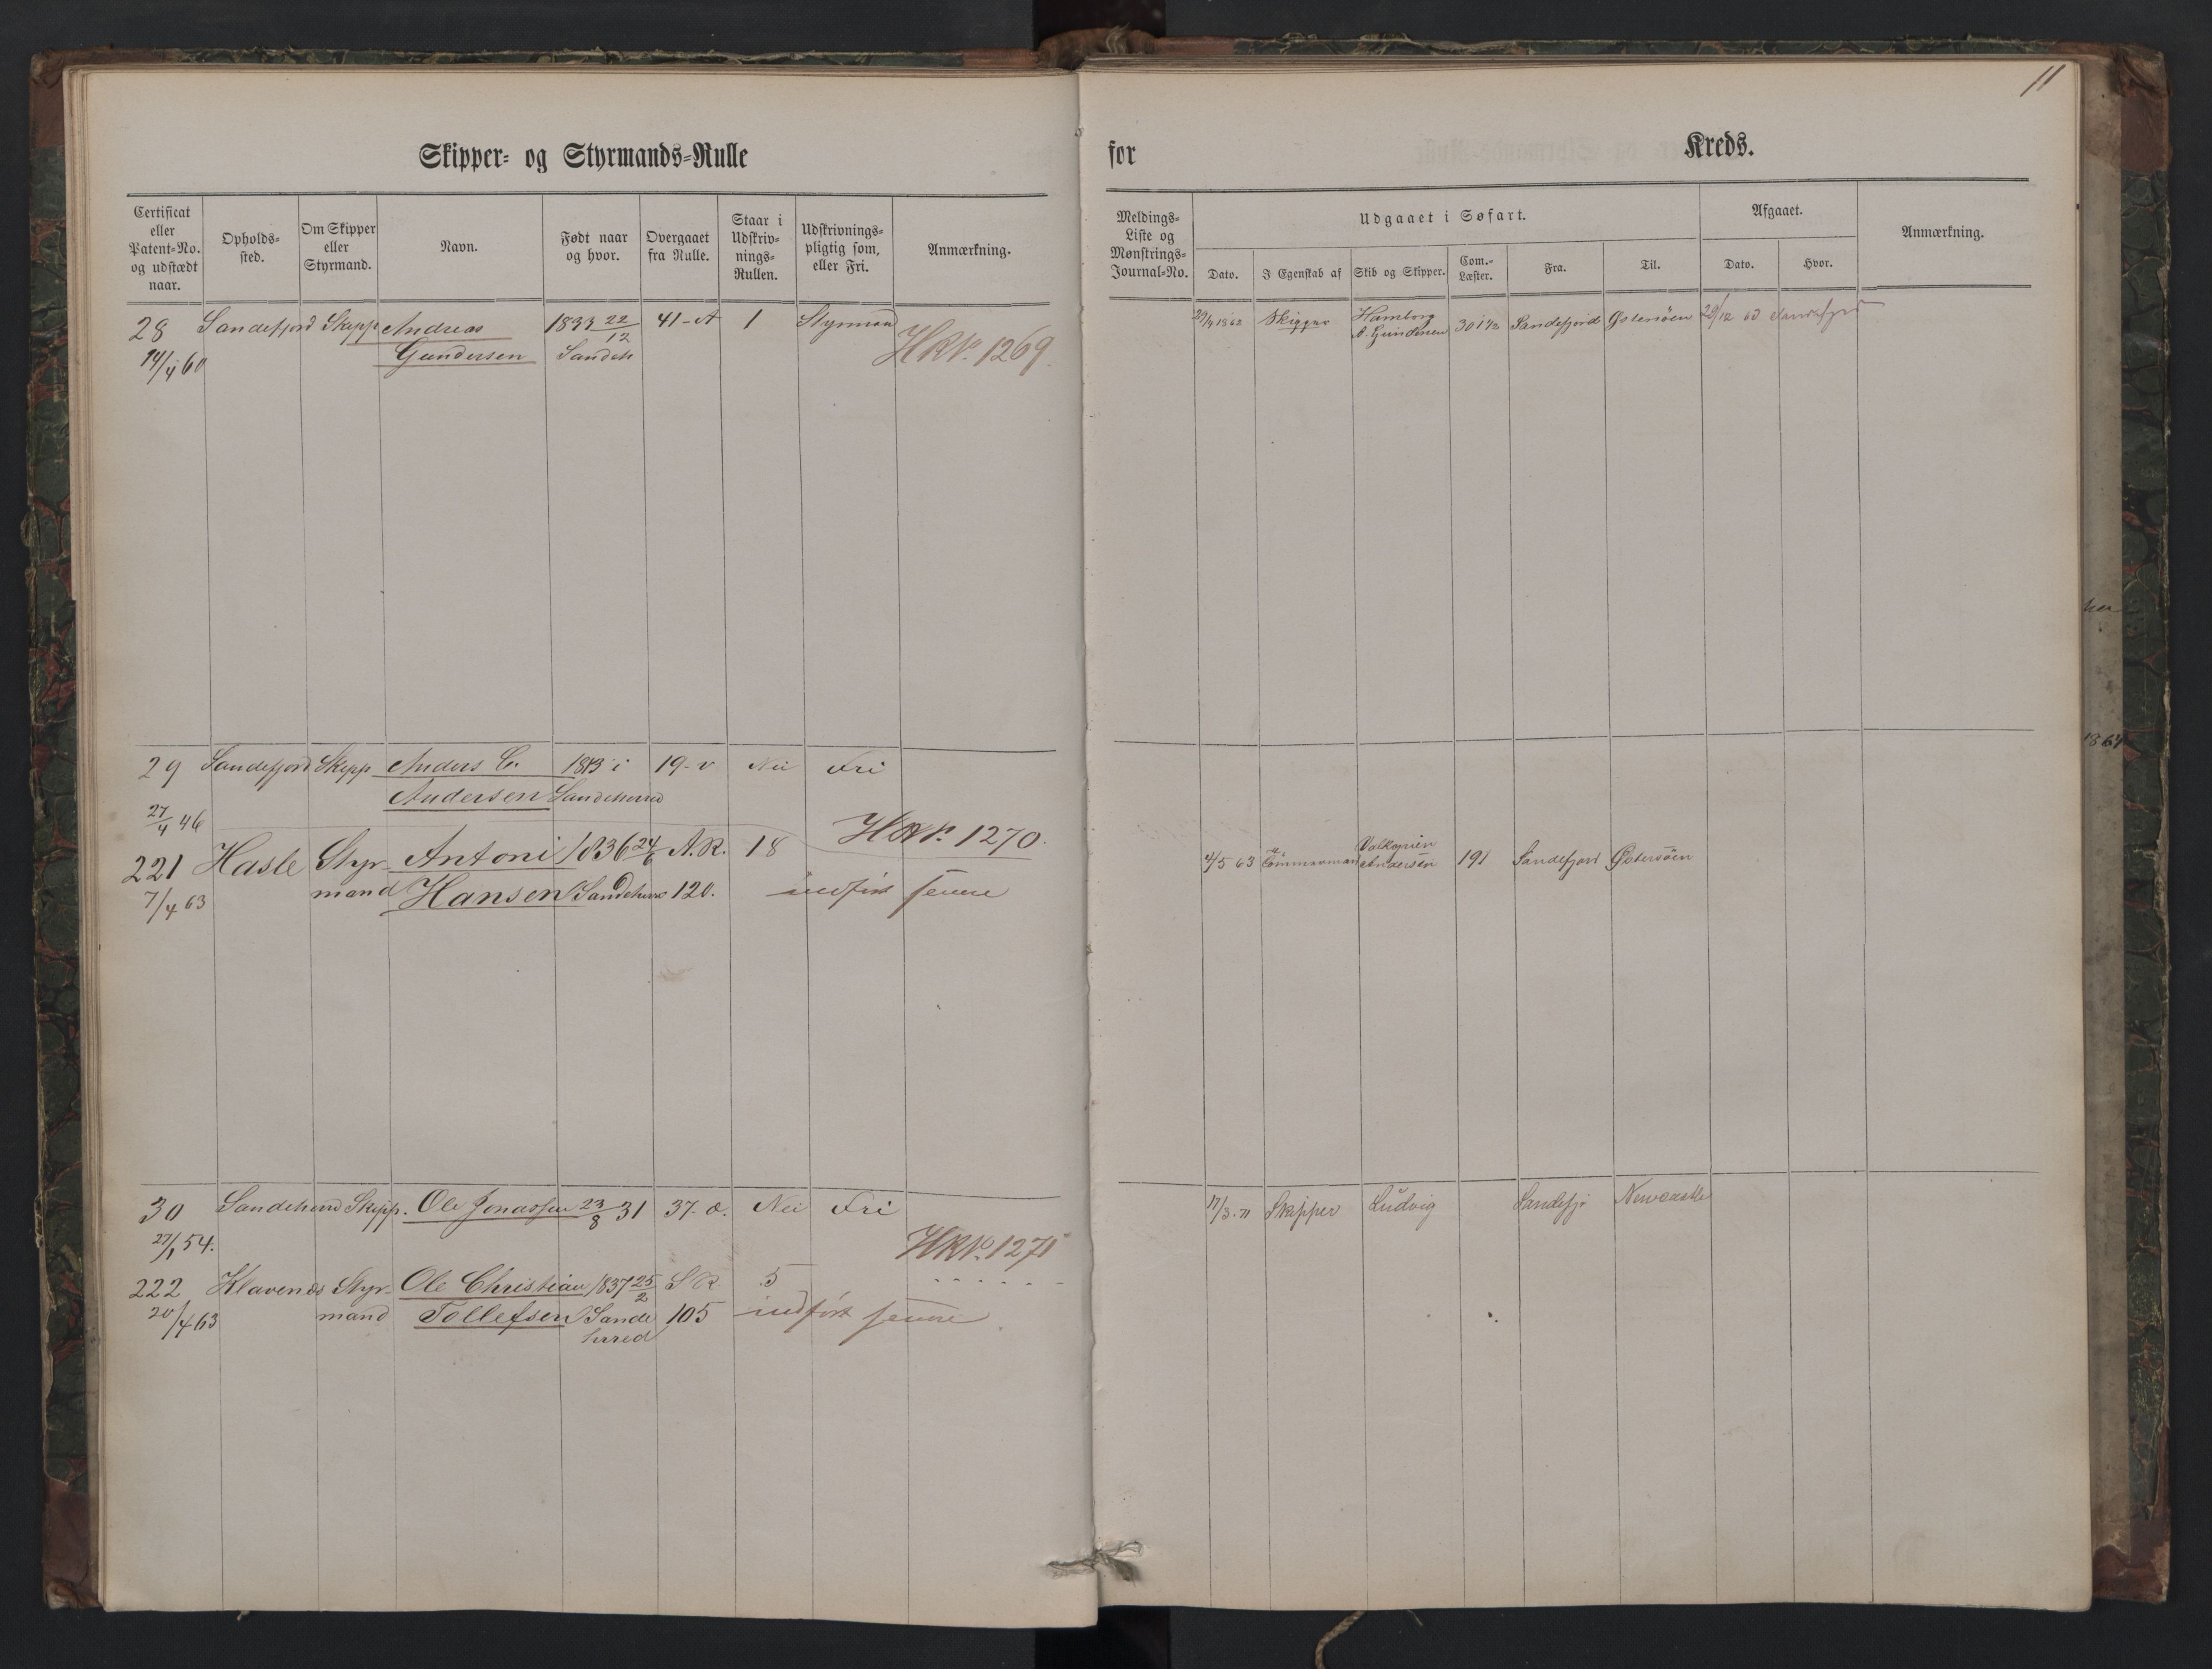 11
Skipper- og Styrmands-Rulle
for Kreds.
Certificat eller Patent-No. og udstædt naar.
Opholds-sted.
Om Skipper eller Styrmand.
Navn.
Født naar og hvor.
Overgaaet fra Rulle.
Staar i Udskriv-nings-Rullen.
Udskrivnings-pligtig som, eller Fri.
Anmærkning.
Meldings-Liste og Mønstrings-Journal-No.
Udgaaet i Søfart.
Dato.
I Egenskab af
Skib og Skipper.
Com.-Læster.
Fra.
Til.
Afgaaet.
Dato.
Hvor.
Anmærkning.
28 Sandefjord Skipp Andreas 1833 22/12 41-A 1 Styrmand
14/4 60 Gundersen Sandeh HRNo. 1269.
Skipper Hamborg A. Gundersen 301½ Sandefjord Østersöen 29/12 63
29 Sandefjord Skipp Anders C. 1813 i 19-v Nei Fri
27/4 46 Andersen Sandeherred
HRNo. 1270.
221 Hasle Styr- Antoni 1836 24/6 A.R. 18
7/4 63 mand Hansen Sandeherre 120. indført senere
4/5 63 Tömmermand Valkyrien Andersen 191 Sandefjord Östersöen
30 Sandeherred Skipp. Ole Jonassen 23/8 31 37. Nei Fri
27/1 54. HRNo. 1271
222 Klavenæs Styr- Ole Christian 1837 25/2 S R 5
20/4 63 mand Tollefsen Sande 105 indført senere
herred
17/3. 71 Skipper Ludvig Sandefj: Newcastle